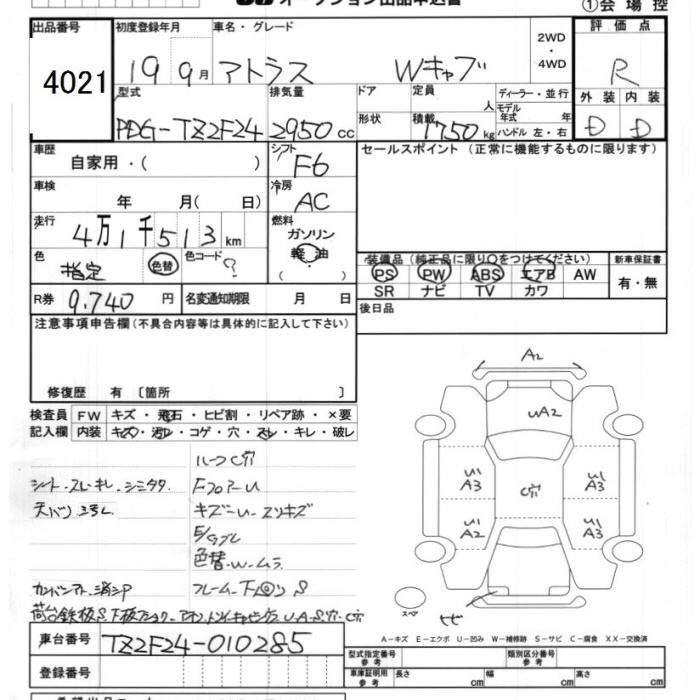 ①会場控
出品番号 初度登録年月 車名・グレード 2WD・4WD 評価点
4021 19 9月 アトラス Wキャブ R
型式 排気量 ドア 定員 人 ディーラー・並行 外装 内装
PDG-TZ2F24 2950cc 形状 積載 1750kg モデル年式 年 ハンドル 左・右 D D
車歴 自家用・( ) シフト F6 セールスポイント (正常に機能するものに限ります)
車検 年 月( 日) 冷房 AC
走行 4万1千513km 燃料 ガソリン・軽油 ( )
色 指定 色替 色コード ? 装備品 (純正品に限り○をつけてください) 新車保証書
PS PW ABS エアB AW 有・無
R券 9,740円 名変通知期限 月 日 SR ナビ TV カワ
注意事項申告欄(不具合内容等は具体的に記入して下さい) 後日品
修復歴 有 〔箇所 〕
検査員 FW キズ・飛石・ヒビ割・リペア跡・×要
記入欄 内装 キズ・汚レ・コゲ・穴・スレ・キレ・破レ
A2
UA2
U1 A3 U1 A3
C穴
U1 A2 U1 A3
スペア ヒビ
ルーフC穴
シート・スレ・キレ・シミ Fフロアーu
天バリ キズ-u-スリキズ
色替・W-ムラ
フレーム・下回り S
A-キズ E-エクボ U-凹み W-補修跡 S-サビ C-腐食 XX-交換済
車台番号 TZ2F24-010285
型式指定番号 参考 類別区分番号 参考
登録番号 車庫証明用 参考 長さ cm 幅 cm 高さ cm